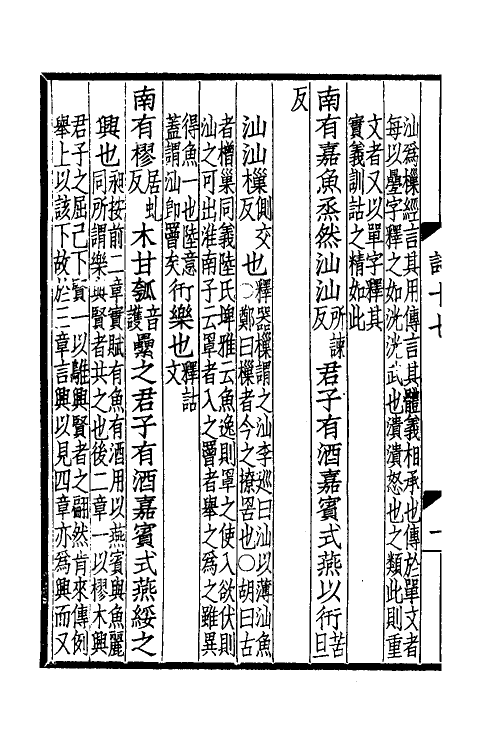 汕爲樔經言其用傳言其體義相承也傳於單文者
每以疊字釋之如洸洸武也潰潰怒也之類此則重
文者又以單字釋其
實義訓詁之精如此
南有嘉魚烝然汕汕所諫反君子有酒嘉賓式燕以衎苦旦
反
汕汕樔側交反也釋器樔謂之汕李巡曰汕以薄汕魚
○鄭曰樔者今之撩罟也○胡曰古
者橧巢同義陸氏埤雅云魚逸則罩之使入欲伏則
汕之可出淮南子云罩者入之罾者舉之爲之雖異
得魚一也陸意
蓋謂汕卽罾矣
衎樂也釋詁文
南有樛居虬反木甘瓠音護纍之君子有酒嘉賓式燕綏之
興也昶按前二章實賦有魚有酒用以燕賓與魚麗
同所謂樂與賢者共之也後二章一以樛木興
君子之屈己下賢一以鵻興賢者之翩然肯來傳例
舉上以該下故於三章言興以見四章亦爲興而又
詩十七